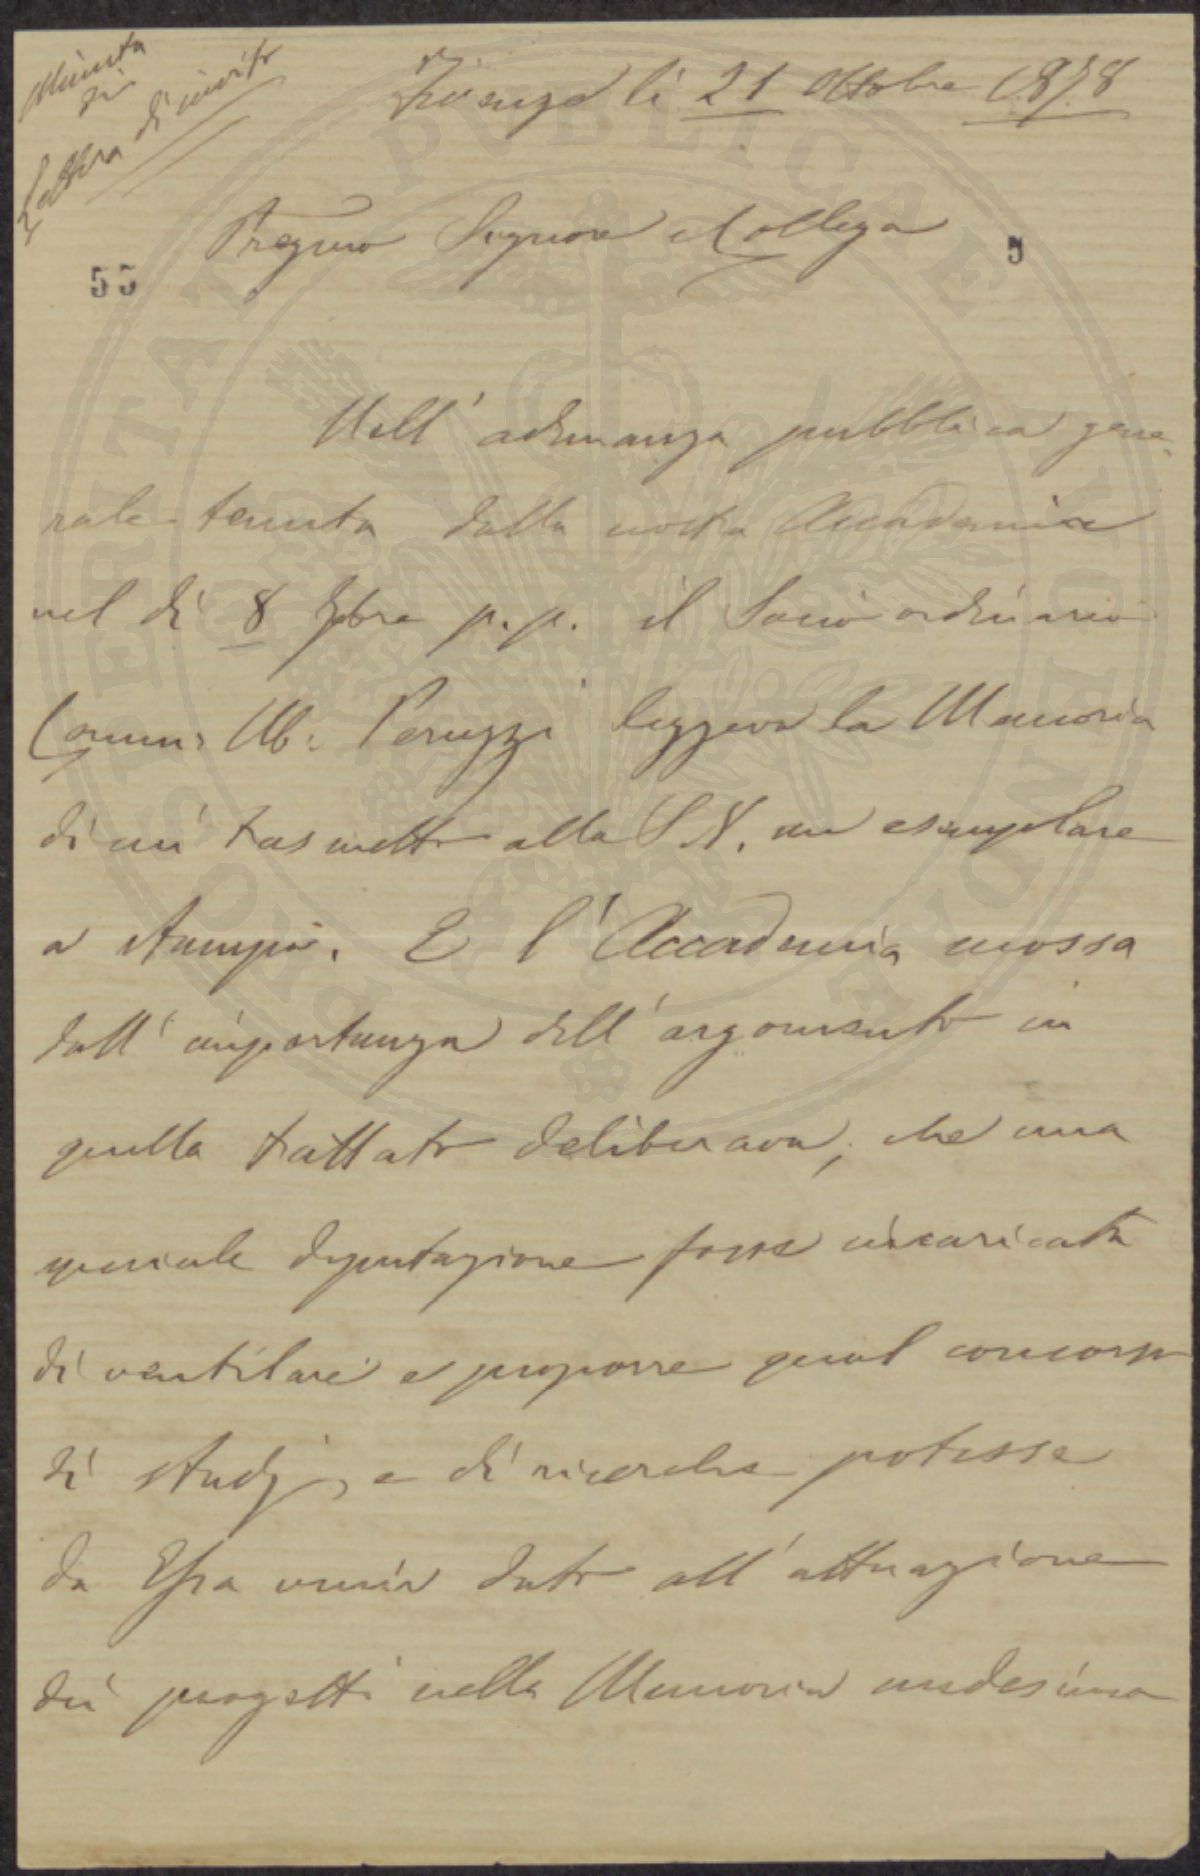 Minuta
di
Lettera di invito
Firenze li 21 Ottobre 1878
Pregmo Signore e Collega
55
5
Nell' adunanza pubblica gene-
rale tenuta dalla nostra Accademia
nel dì 8 7bre p.p. il Socio ordinario
Comm. Ub. Peruzzi leggeva la Memoria
di cui trasmetto alla S.V. un esemplare
a stampa. E l'Accademia mossa
dall' importanza dell' argomento in
quella trattato deliberava, che una
speciale deputazione fosse incaricata
di ventilare e proporre qual concorso
di studj, e di ricerche potesse
da Essa venir dato all' attuazione
dei progetti nella Memoria medesima
PUBLICAE
PROSPERITATI
AUGENDAE